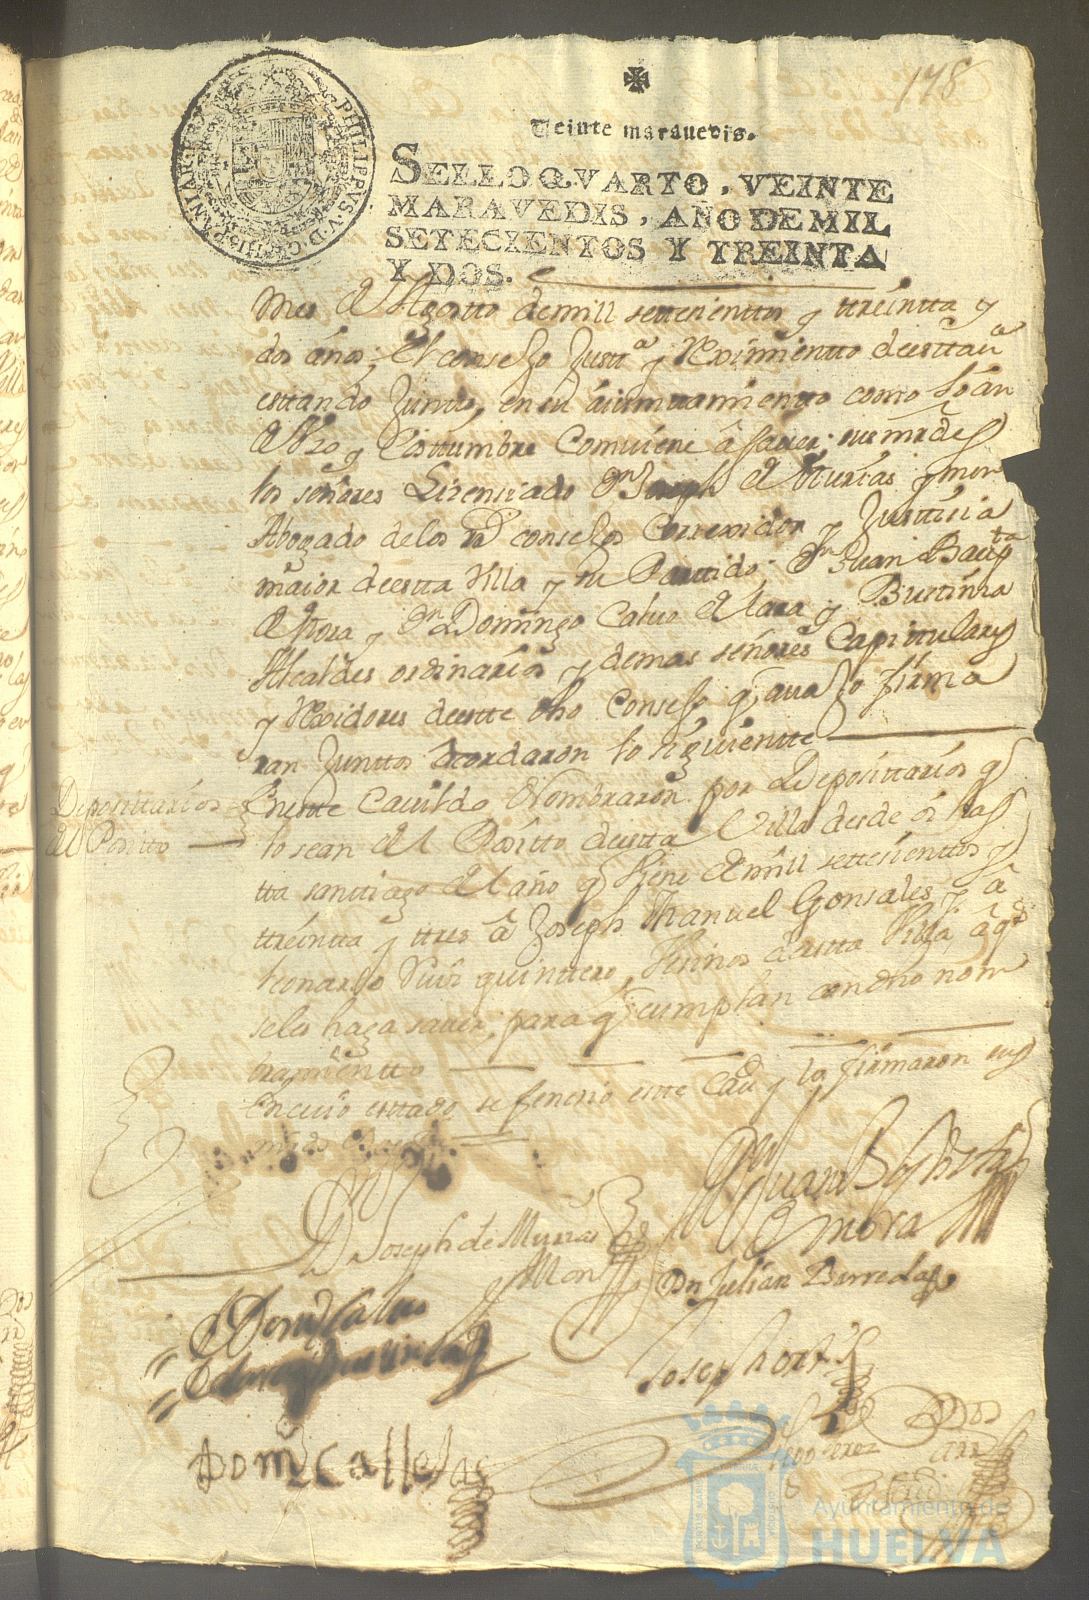 178
PHILIPPVS V D G HISPANIAR REX
Veinte marauedis.
SELLO QVARTO, VEINTE
MARAVEDIS, AÑO DE MIL
SETECIENTOS Y TREINTA
Y DOS.
mes de Agosto de mill settecienttos y ttreintta y
dos años; el consejo Justtª y Reximientto de estta uª
esttando Juntos, en su aiunttamientto como lo àn
de Uzo y Costtumbre Combiene â saver; sus mrdes
los señores Lizensiado Dn Joseph de Murias y mon
Abogado de los Rs consejos Correxidor y Justticia
maior de estta Villa y su Parttido; Dn Juan Bauptta
de Mora y Dn Domingo Calvo de Lara y Bustinza
Alcaldes ordinarios y demas señores Capittulares
y Rexidores de estte dho Consejo q aua lo firma
ran Junttos acordaron lo siguientte
Depositarios
del Positto
En este Cavildo Nombraron por Deposittarios q
lo sean del Positto de estta Villa desde oi has
tta santtiago del año q Viene de mill settesienttos y
ttreintta y ttres â Joseph Manuel Gonsales, y â
Leonardo Ruiz quinttero, Vezinos de estta Villa, â qs
se les haga saver, para q cumplan con dho nom
bramientto
En cuio esttado se fenecio este Cauº y lo firmaron sus
mrds
Dn Joseph de Murias
Mon
Juan Bapista
de mora
Dn Julian Barreda
Domº Calvo
de Lara y Bustinza
Joseph ortiz
Domº Calleja
Perez
Ayuntamiento de
HUELVA